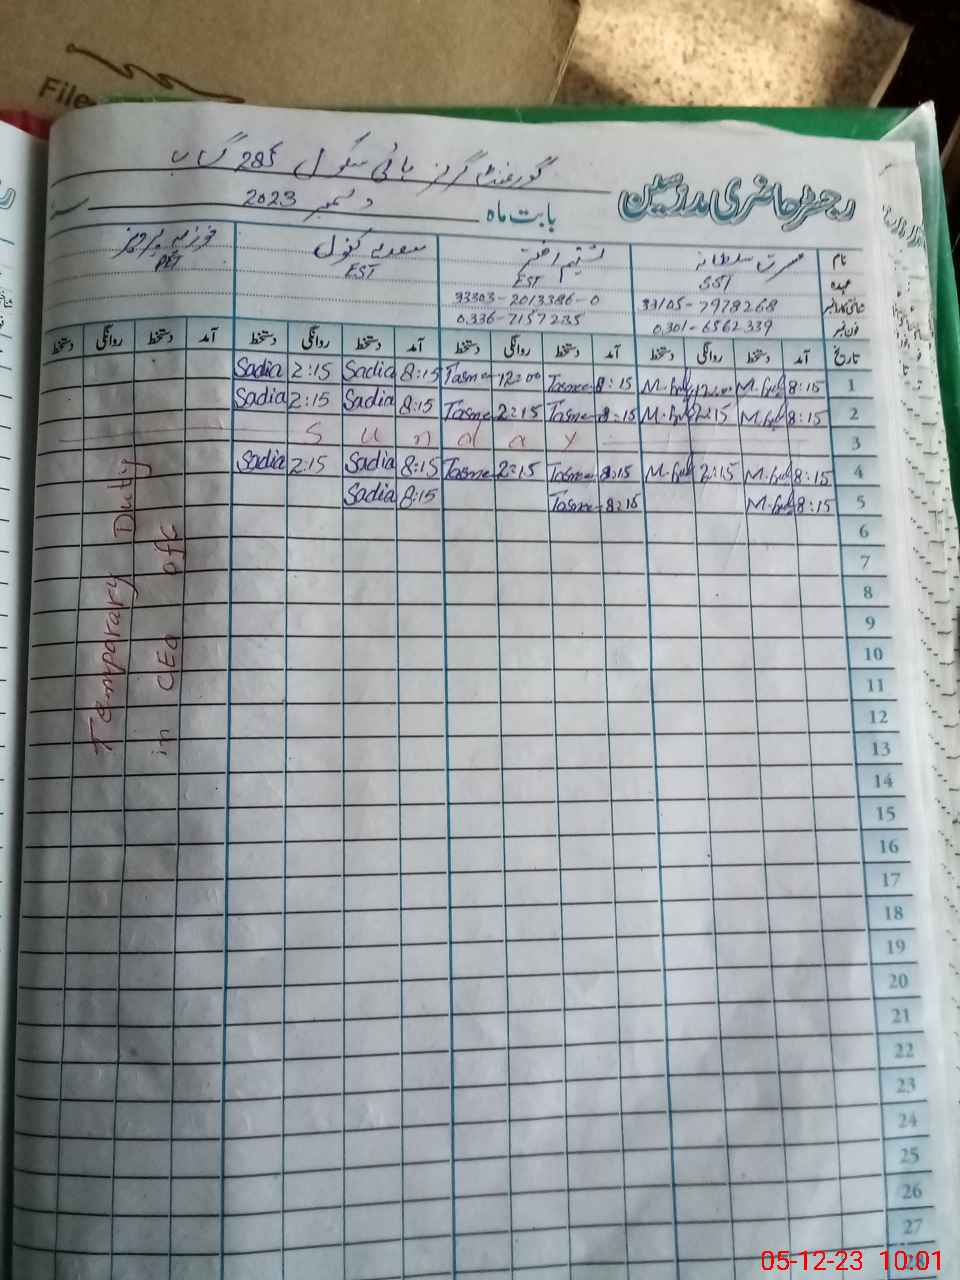 File
گورنمنٹ گرلز ہائی سکول 285 گ ب
رجسٹر حاضری مدرسین
بابت ماہ دسمبر 2023
نام مسرت سلطانہ تسنیم اختر سعدیہ کنول فوزیہ پروین
عہدہ SST EST EST PET
شناختی کارڈ نمبر 33105-7978268 33303-2013386-0
فون نمبر 0301-6562339 0336-7157235
تاریخ آمد دستخط روانگی دستخط آمد دستخط روانگی دستخط آمد دستخط روانگی دستخط آمد دستخط روانگی دستخط
1 8:15 12:00 8:15 Tasne 12:00 Tasne 8:15 Sadia 2:15 Sadia
2 8:15 2:15 8:15 Tasne 2:15 Tasne 8:15 Sadia 2:15 Sadia
3 Sunday
4 8:15 2:15 8:15 Tasne 2:15 Tasne 8:15 Sadia 2:15 Sadia
5 8:15 8:15 Tasne 8:15 Sadia
6
7
8
9
10
11
12
13
14
15
16
17
18
19
20
21
22
23
24
25
26
27
28
Temparary Duty
in CEO ofc
05-12-23 10:01